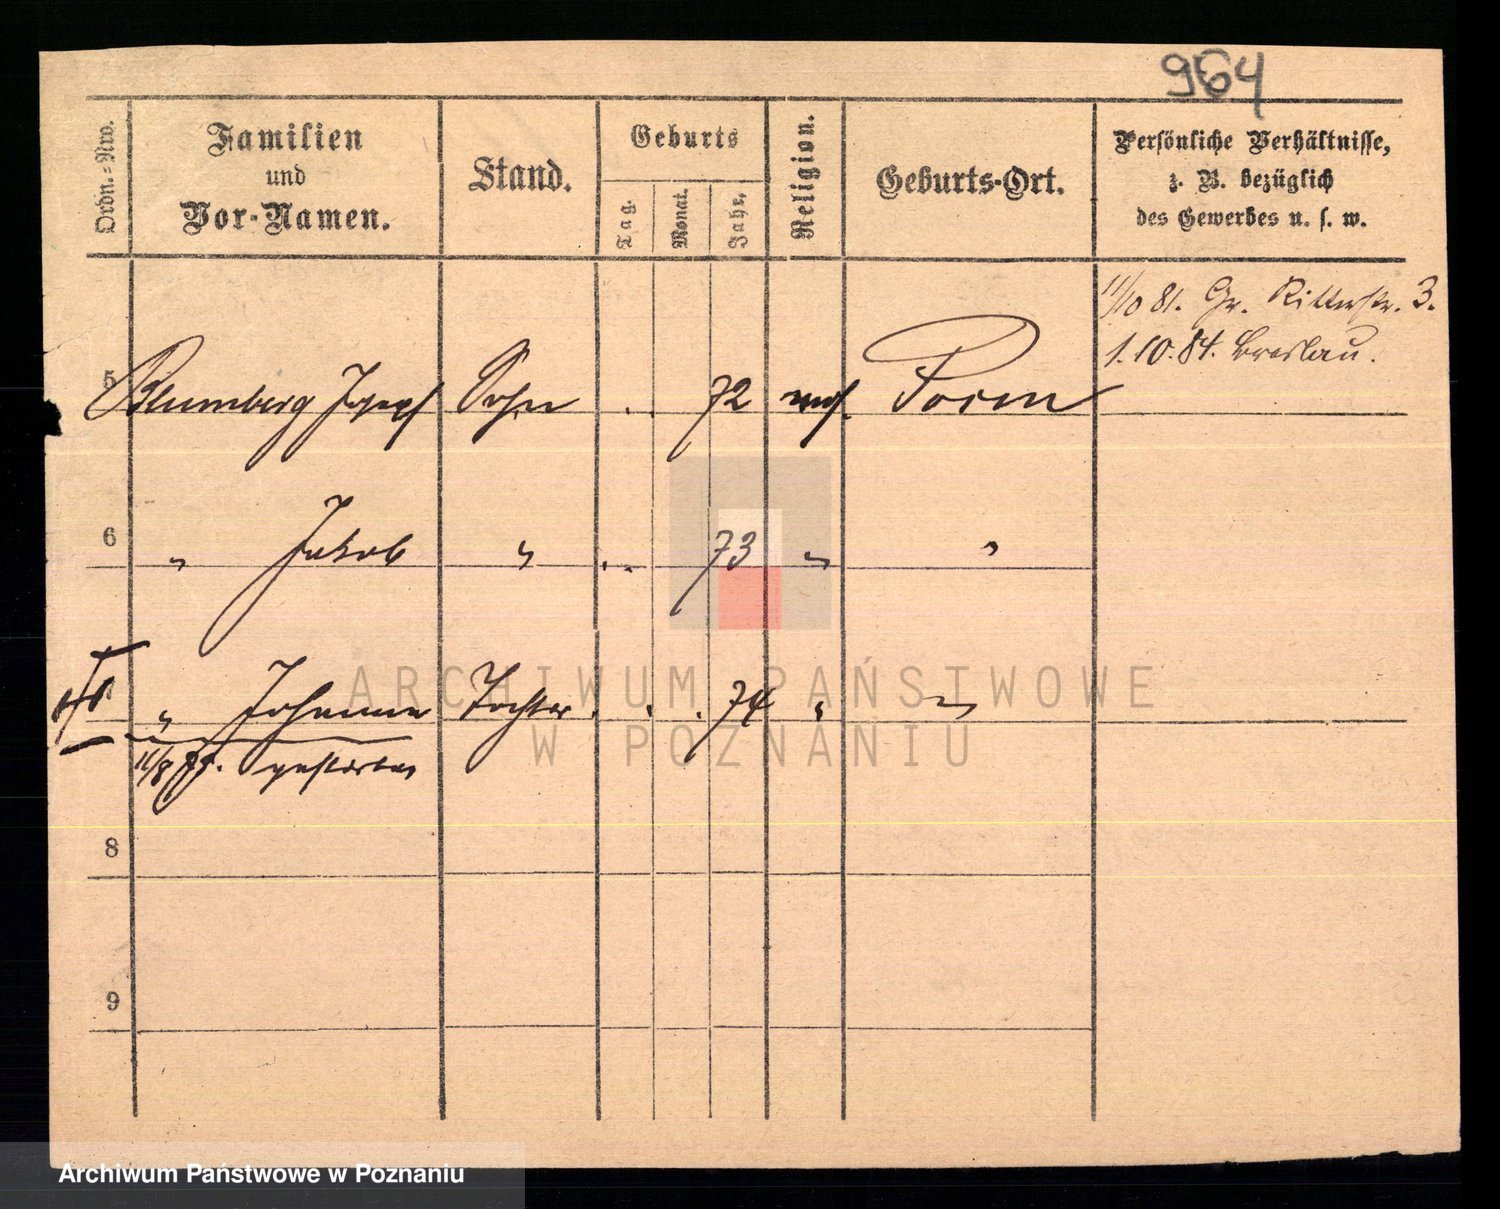 964
Ordn.-Nro.
Familien
und
Vor-Namen.
Stand.
Geburts
Tag.
Monat.
Jahr.
Religion.
Geburts-Ort.
Persönliche Verhältnisse,
z. B. bezüglich
des Gewerbes u. s. w.
11/10 81. Gr. Ritterstr. 3.
1. 10. 84. Breslau.
5 Blumberg Josef Sohn 72 mos. Posen
6 " Jakob " 73 " "
" Johanna Tochter 74 " "
gestorben
8
9
ARCHIWUM PAŃSTWOWE
W POZNANIU
Archiwum Państwowe w Poznaniu